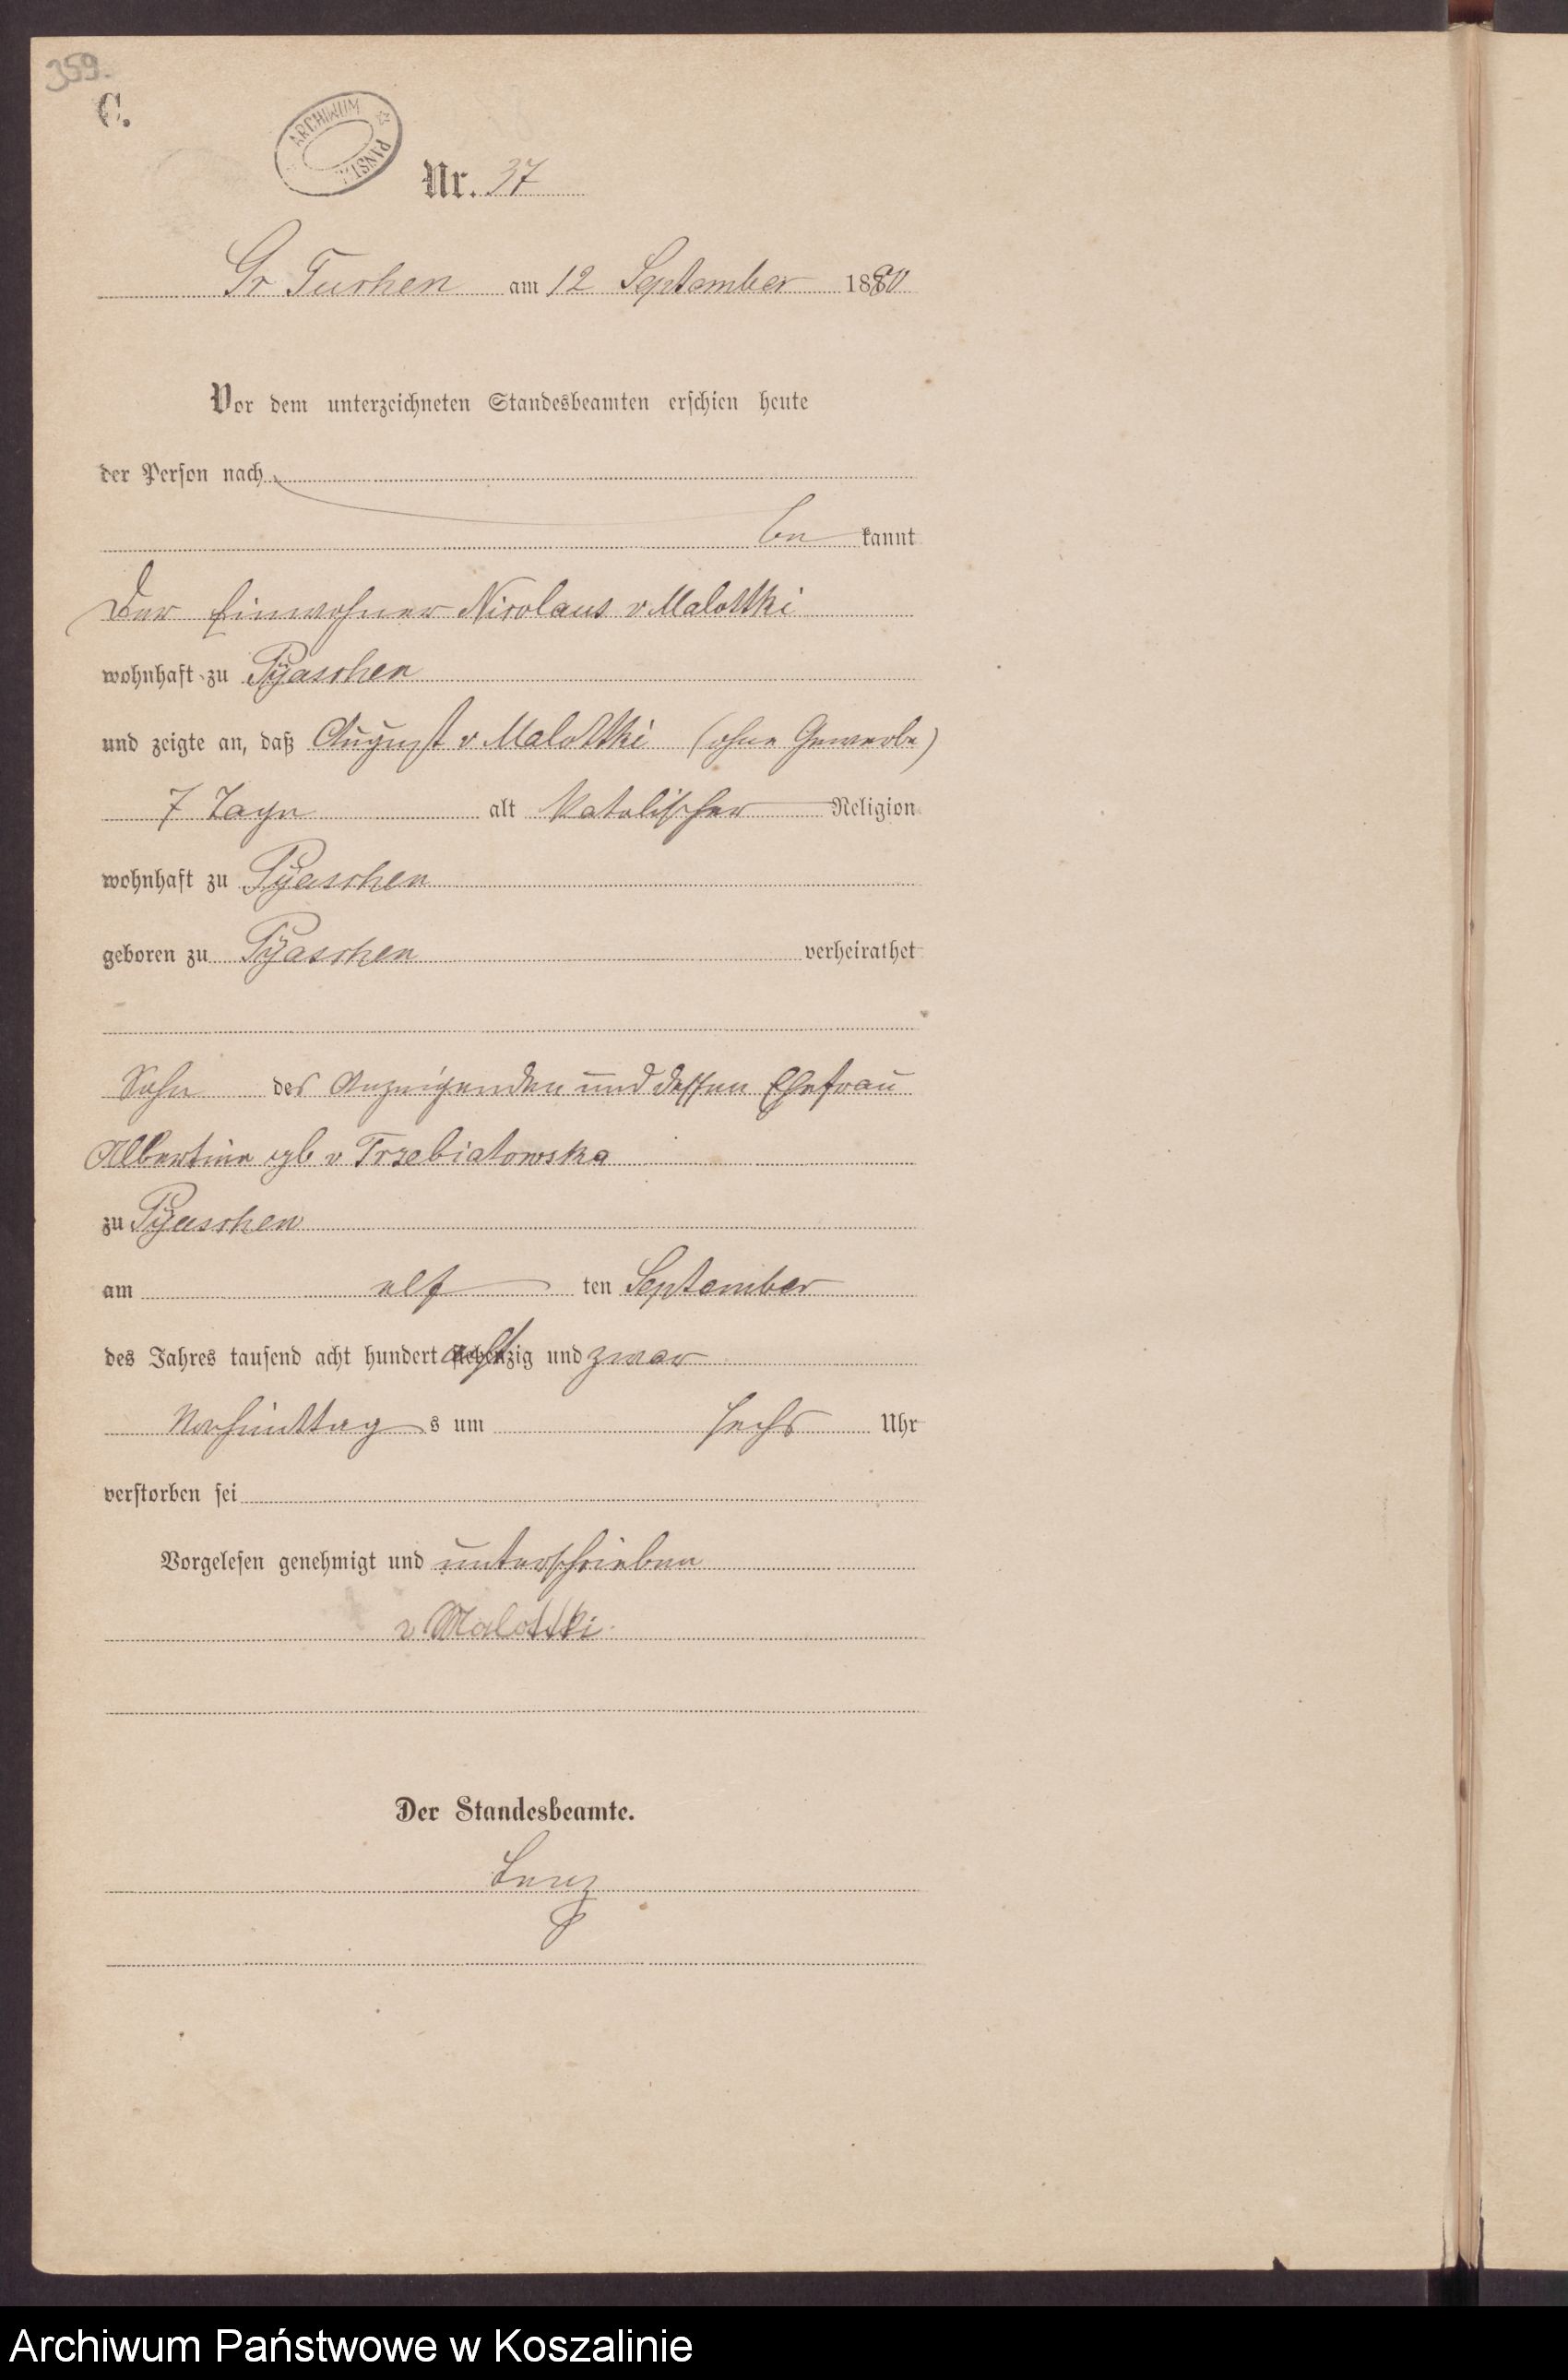 359.
C.
ARCHIWUM PAŃSTW.
Nr. 37
Gr Tuchen am 12 September 1880
Vor dem unterzeichneten Standesbeamten erschien heute
der Person nach
be kannt
Der Einwohner Nicolaus v Malottki
wohnhaft zu Pÿaschen
und zeigte an, daß August v Malottki (ohne Gewerbe)
7 Tage alt katolischer Religion
wohnhaft zu Pÿaschen
geboren zu Pÿaschen verheirathet
Sohn des Anzeigenden und dessen Ehefrau
Albertine geb v Trzebiatowska
zu Pÿaschen
am elf ten September
des Jahres tausend acht hundert achtzig und zwar
Nachmittag s um sechs Uhr
verstorben sei
Vorgelesen genehmigt und unterschrieben
v Malottki.
Der Standesbeamte.
Archiwum Państwowe w Koszalinie